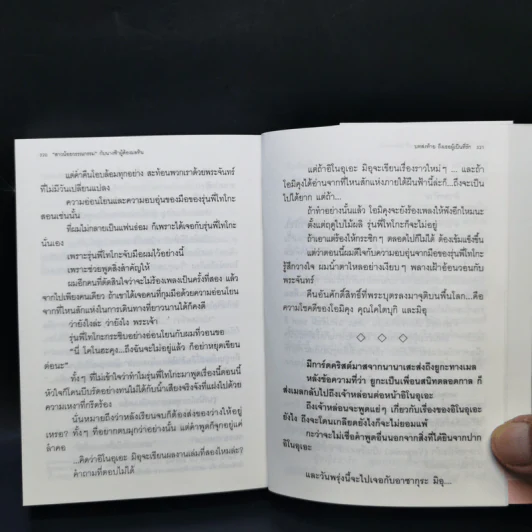 แต่ค่ำคืนโอบล้อมทุกอย่าง สะท้อนพวกเราด้วยพระจันทร์
ที่ไม่มีวันเปลี่ยนแปลง
ความอ่อนโยนและความอบอุ่นของมือของรุ่นพี่ไทโกะ
สอนเช่นนั้น
ที่ผมไม่กลายเป็นแฟนร่อม ก็เพราะได้เจอกับรุ่นพี่ไทโกะ
นั่นเอง
เพราะรุ่นพี่ไทโกะจับมือผมไว้อย่างนี้
เพราะช่วยพูดสิ่งสำคัญให้
ผมอีกคนที่ตัดสินใจว่าจะไม่ร้องเพลงเป็นครั้งที่สอง แล้ว
จากไปเพียงคนเดียว ถ้าเขาได้เจอคนที่กุมมือด้วยความอ่อนโยน
จากที่ไหนสักแห่งในการเดินทางที่ยาวนานได้ก็คงดี
ว่ายังไงล่ะ ว่ายังไง พระเจ้า
รุ่นพี่ไทโกะกระซิบอย่างอ่อนโยนกับผมที่วอนขอ
"นี่ โคโนฮะคุง...ถึงฉันจะไม่อยู่แล้ว ก็อย่าหยุดเขียน
ต่อนะ"
ทั้งๆ ที่ไม่เข้าใจว่าทำไมรุ่นพี่ไทโกะมาพูดเรื่องนี้ตอนนี้
หัวใจก็โดนบีบรัดอย่างทนไม่ได้กับน้ำเสียงจริงจังที่แฝงไปด้วย
ความเหงาที่กรีดร้อง
นั่นหมายถึงว่าหลังเรียนจบก็ต้องส่งของว่างให้อยู่
เหรอ? ทั้งๆ ที่อยากตบมุกว่าอย่างนั้น แต่คำพูดก็จุกอยู่แค่
ลำคอ
...คิดว่าอิโนอุเอะ มิอุจะเขียนผลงานเล่มที่สองไหมล่ะ?
คำถามที่ตอบไม่ได้
บทส่งท้าย ถึงเธอผู้เป็นที่รัก 321
แต่ถ้าอิโนอุเอะ มิอุจะเขียนเรื่องราวใหม่ๆ ... และถ้า
โอมิคุงได้อ่านจากที่ไหนสักแห่งภายใต้ผืนฟ้านี้ล่ะก็...ถึงจะเป็น
ไปได้ยาก แต่ถ้า...
ถ้าทำอย่างนั้นแล้ว โอมิคุงจะยังร้องเพลงให้ฟังอีกไหมนะ
ตั้งแต่ฤดูใบไม้ผลิ รุ่นพี่ไทโกะก็จะไม่อยู่
ถ้าเอาแต่ร้องไห้กระซิกๆ ตลอดไปก็ไม่ได้ ต้องเข้มแข็งขึ้น
แต่ว่าตอนนี้ผมดีใจกับความอบอุ่นจากมือของรุ่นพี่ไทโกะ
รู้สึกวางใจ ผมน้ำตาไหลอย่างเงียบๆ พลางเฝ้าอ้อนวอนกับ
พระจันทร์
คืนอันศักดิ์สิทธิ์ที่พระบุตรลงมาจุติบนพื้นโลก...คือ
ความโชคดีของโอมิคุง คุณโคโตบุกิ และมิอุ
มีการ์ดคริสต์มาสจากนานาเสะส่งถึงยูกะทางเมล
หลังข้อความที่ว่า ยูกะเป็นเพื่อนสนิทตลอดกาล ก็
ส่งเมลกลับไปถึงเจ้าหล่อนต่อหน้าอิโนอุเอะ
ถึงเจ้าหล่อนจะพูดแย่ๆ เกี่ยวกับเรื่องของอิโนอุเอะ
ยังไง ถึงจะโดนเกลียดยังไงก็จะไม่ยอมแพ้
กะว่าจะไม่เชื่อคำพูดอื่นนอกจากสิ่งที่ได้ยินจากปาก
อิโนอุเอะ
และวันพรุ่งนี้จะไปเจอกับอาซากุระ มิอุ...